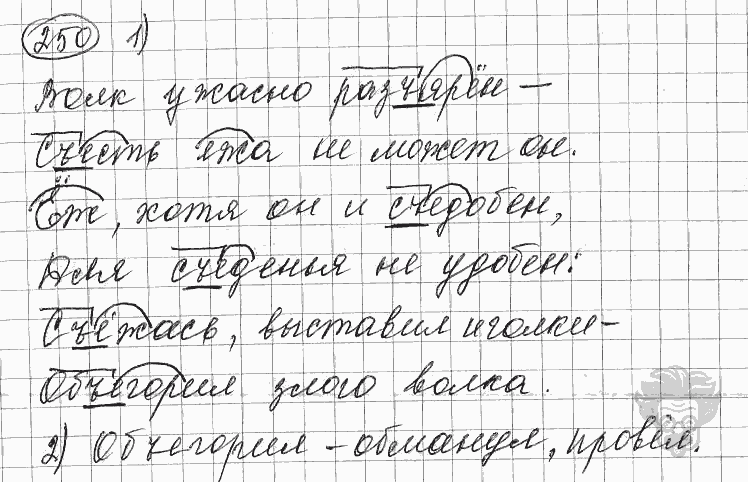 250 1)
Волк ужасно разъярён –
Съесть ежа не может он.
Ёж, хотя он и съедобен,
Для съеденья не удобен:
Съёжась, выставил иголки –
Объегорил злого волка.
2) Объегорил – обманул, провёл.